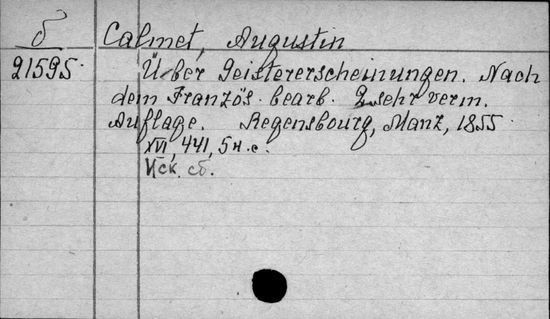 δ Calmet, Augustin
21595. Über Geistererscheinungen. Nach
dem Französ. bearb. 2 sehr verm.
Auflage. Regensbourg, Manz, 1855.
XVI, 441, 5 н.с.
Иск. сб.